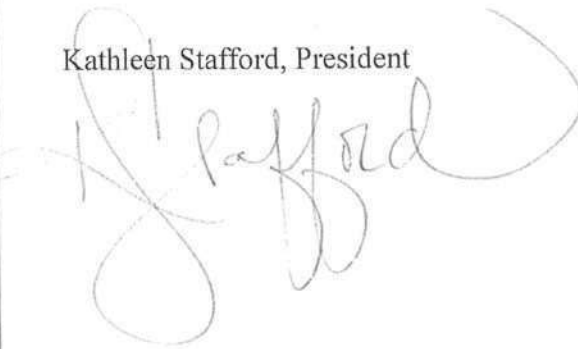 Kathleen Stafford, President
K Stafford